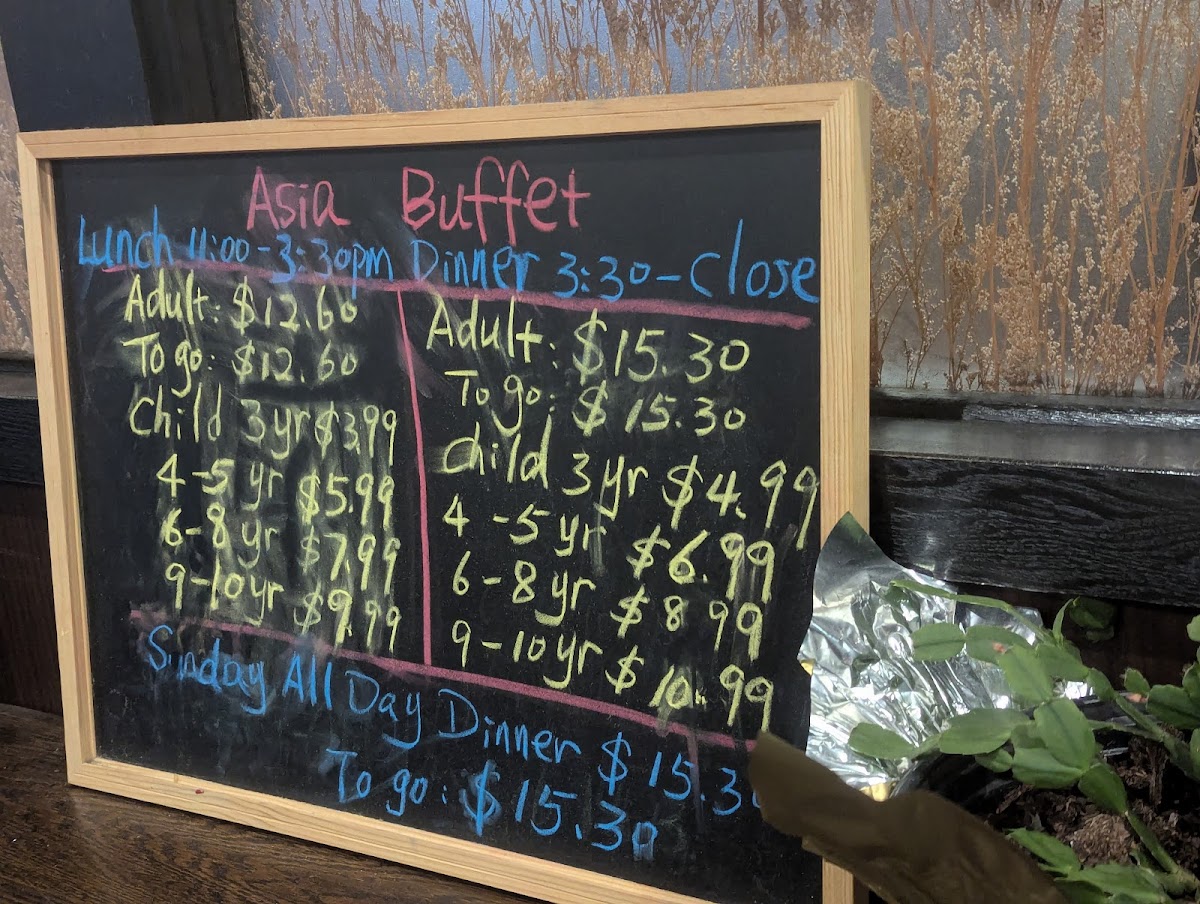 Asia Buffet
Lunch 11:00-3:30pm Dinner 3:30-Close
Adult: $12.60
To go: $12.60
Child 3yr $3.99
4-5 yr $5.99
6-8 yr $7.99
9-10yr $9.99
Adult: $15.30
To go: $15.30
child 3 yr $4.99
4-5 yr $6.99
6-8 yr $8 99
9-10 yr $10.99
Sinday All Day Dinner $15.30
To go: $15.30